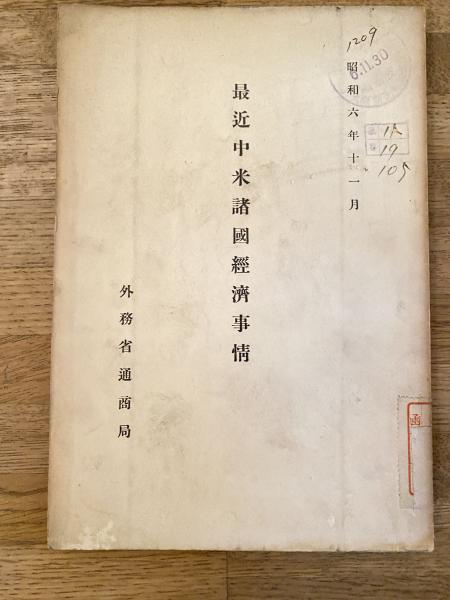 1209
昭和六年十一月
6.11.30
19
105
最近中米諸國經濟事情
外務省通商局
函